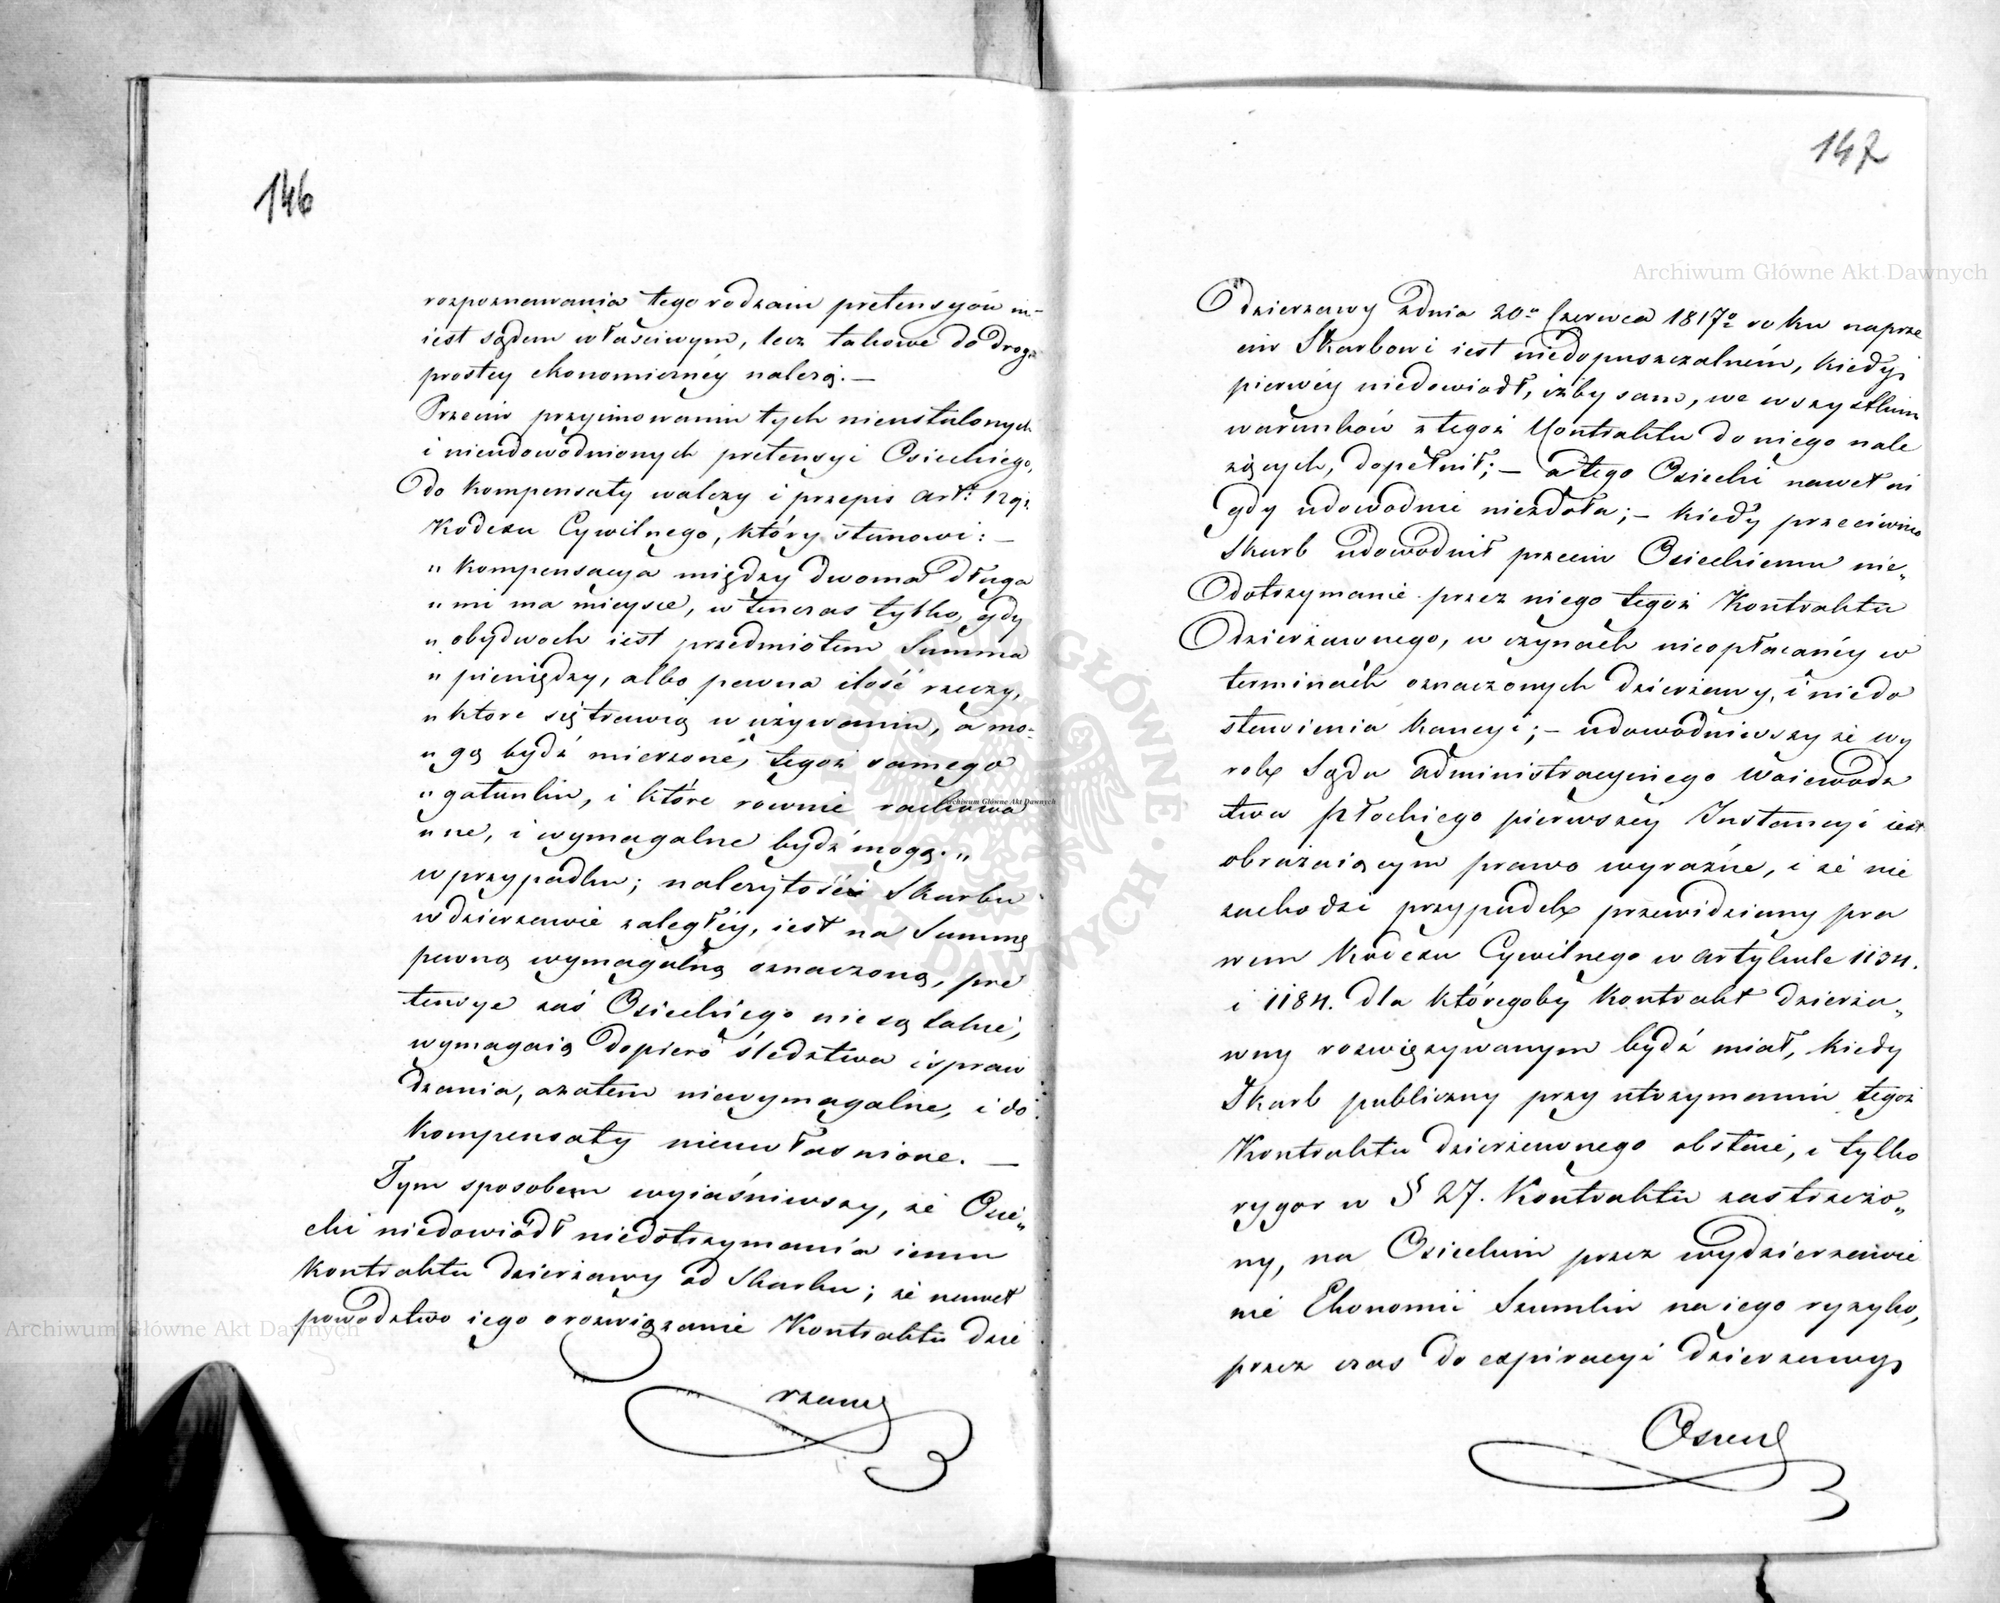 146
rozpoznawania tego rodzaiu pretensyów nie
iest sądem właściwym, lecz takowe do drogi
prostey ekonomicznéy należą. —
Przeciw przyimowaniu tych nieustalonych
i nieudowodnionych pretensyi Osieckiego,
do kompensaty walczy i przepis art: 1291.
Kodexu Cywilnego, który stanowi: —
„ Kompensacya między dwoma długa
„ mi ma mieysce, w tenczas tylko, gdy
„ obydwóch iest przedmiotem Summa
„ pieniędzy, albo pewna ilość rzeczy,
„ które się trawią w używaniu, a mo-
„ gą bydź mierzone, tegoż samego
„ gatunku, i które równie rachowa
„ ne, i wymagalne bydź mogą. „
w przypadku; należytość Skarbu
w dzierżawie zaległéy, iest na Summę
pewną wymagalną oznaczoną, pre
tensye zaś Osieckiego nie są takie,
wymagaią dopiero śledztwa i spraw
dzania, a zatem niewymagalne, i do
kompensaty nieuwłasnione. —
Tym sposobem wyiaśniwszy, że Osie„
cki niedowiódł niedotrzymania iemu
Kontraktu dzierżawy od Skarbu; że nawet
powództwo iego o rozwiązanie Kontraktu dzie
rżawy
147
dzierżawy z dnia 20o Czerwca 1817o roku naprze
ciw Skarbowi iest niedopuszczalném, kiedy
pierwéy niedowiódł, iżby sam, we wszystkim
warunków z tegoż Kontraktu do niego nale
żących, dopełnił; — a tego Osiecki nawet ni
gdy udowodnić niezdoła; — kiedy przeciwnie
Skarb udowodnił przeciw Osieckiemu nie„
dotrzymanie przez niego tegoż Kontraktu
dzierżawnego, w czynach nieopłacanéy w
terminach oznaczonych dzierżawy, i niedo
stawienia kaucyi; — udowodniwszy że wy
rok Sądu Administracyinego Woiewódz
twa Płockiego pierwszey Instancyi iest
obrażaiącym prawo wyraźne, i że nie
zachodzi przypadek przewidziany pra
wem Kodexu Cywilnego w Artykule 1134.
i 1184. dla któregoby kontrakt dzierża„
wny rozwięzywanym bydź miał, kiedy
Skarb publiczny przy utrzymaniu tegoż
Kontraktu dzierżawnego obstaie, i tylko
rygor w § 27. Kontraktu zastrzeżo„
ny, na Osieckim przez wydzierżawie
nie Ekonomii Szumlin na iego ryzyko,
przez czas do expiracyi dzierżawy
Archiwum Główne Akt Dawnych
Archiwum Główne Akt Dawnych
Archiwum Główne Akt Dawnych